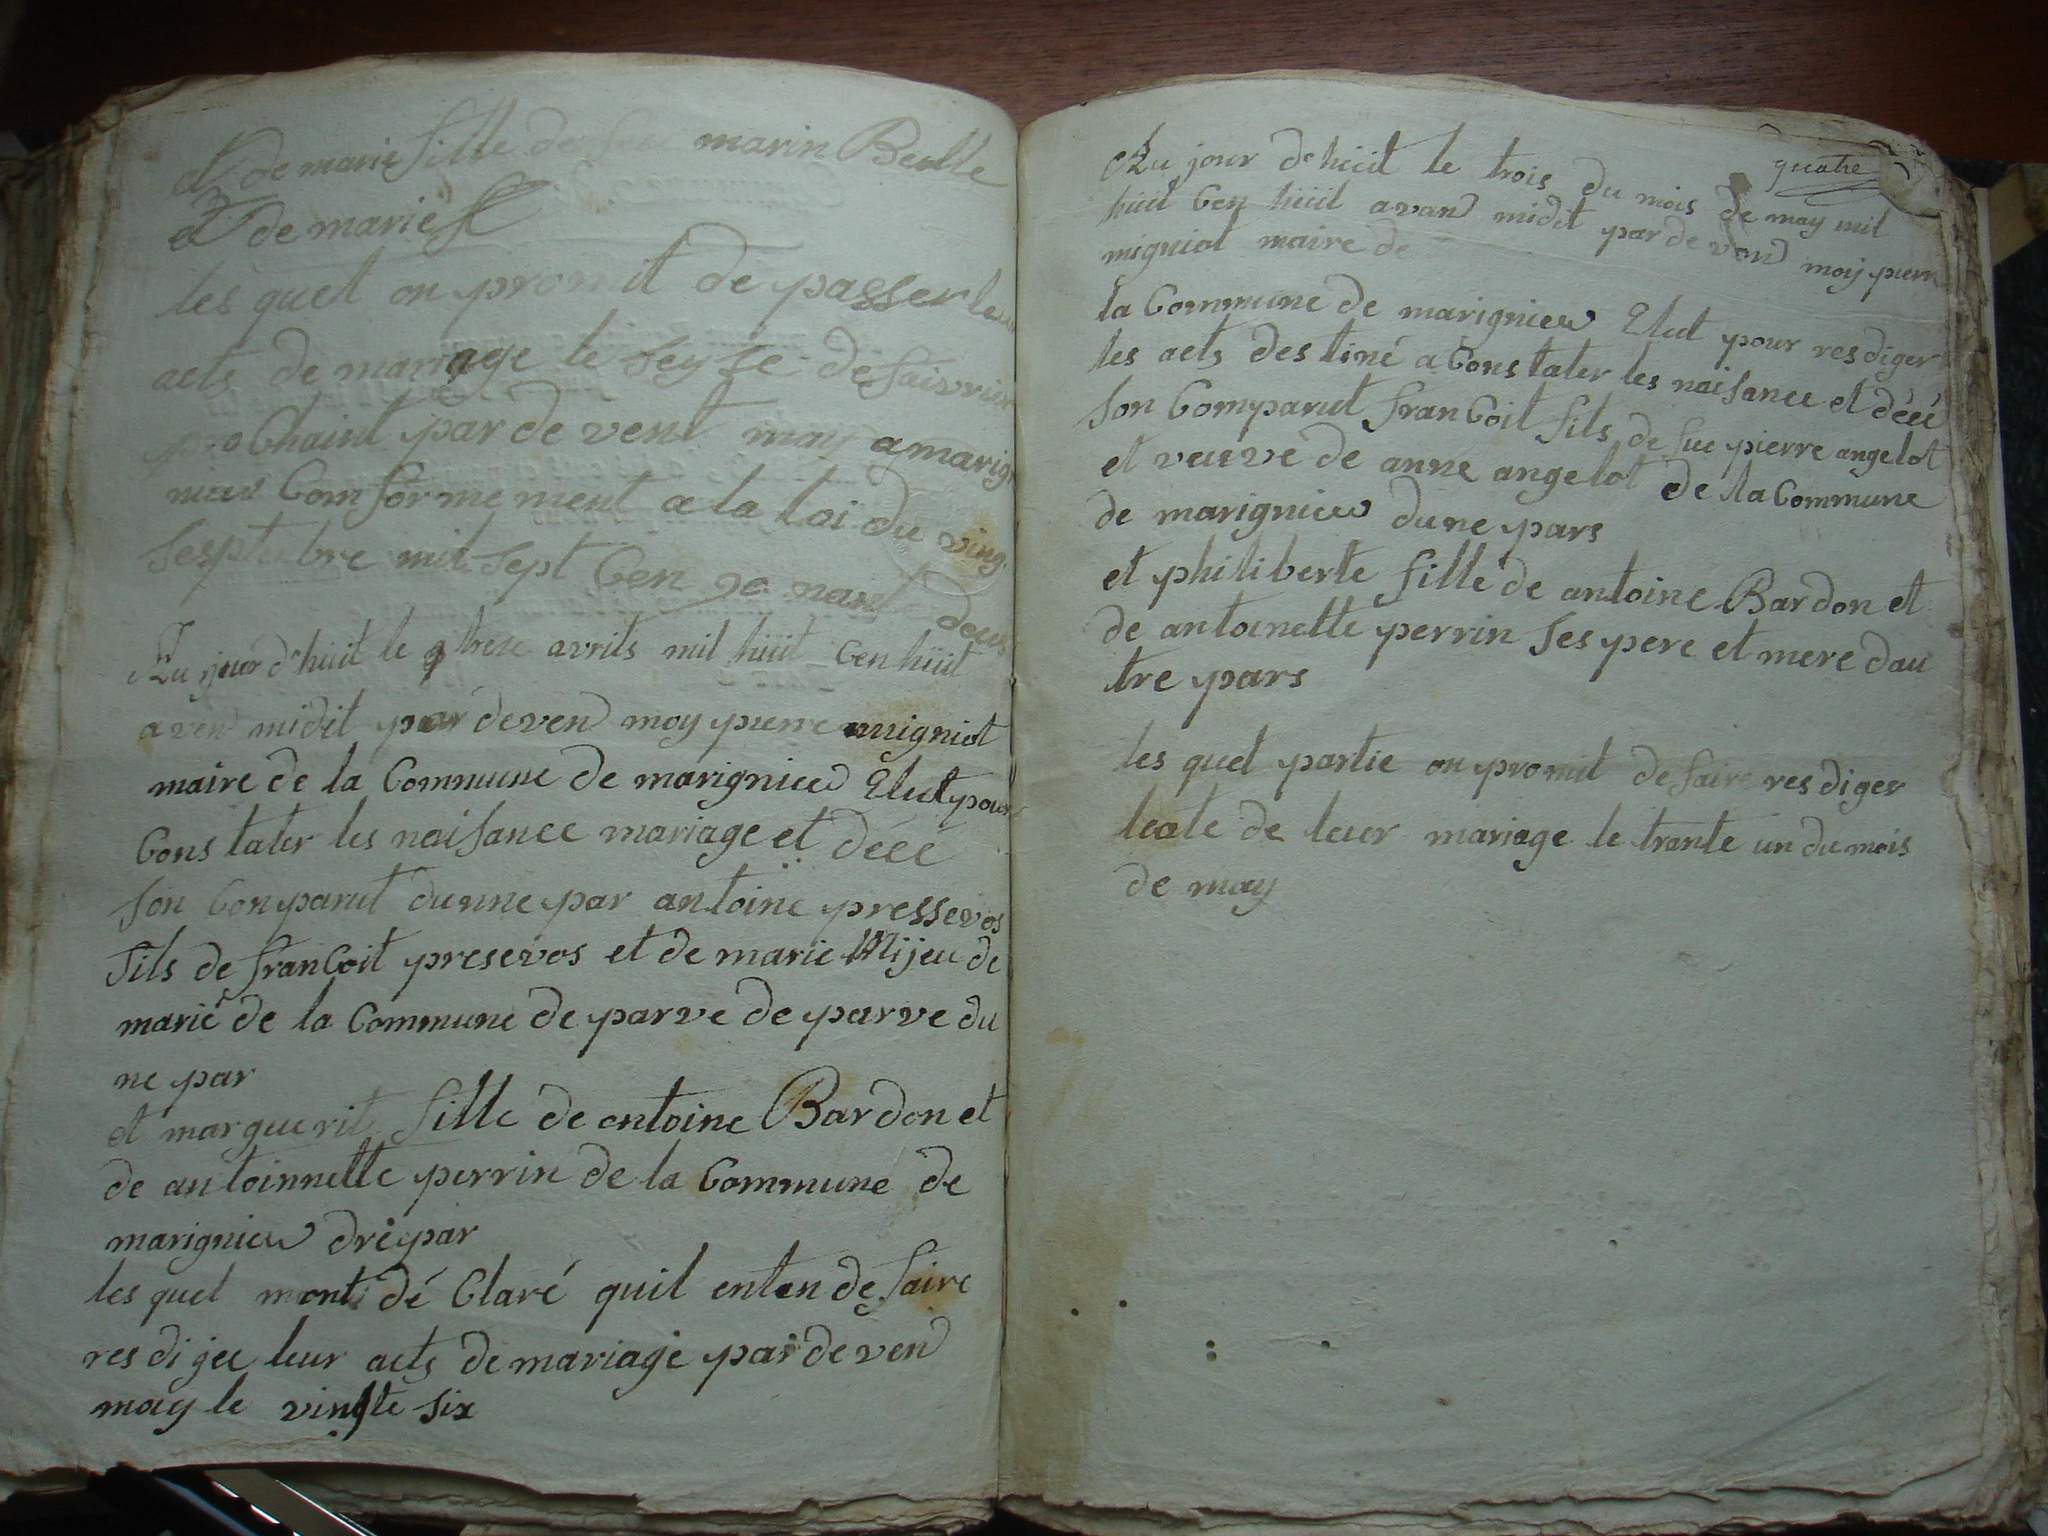 et de marie fille de feu marin Beulle
et de marie
les quel on promit de passer leur
acts de mariage le seyse de faivrier
prochaint par de vent moy a marig
nieu Comformement a la loi du ving
sesptebre mil sept Cen 90 nant deus
Au jour d'huit le treze avrils mil hüit Cen hüit
aven midit par deven moy pierre migniot
maire de la Commune de marignieu Elut pour
Constater les naisance mariage et décé
son Conparut dunne par antoine pressevos
fils de franCoit presevos et de marie Mijeu de
marié de la Commune de parve de parve du
ne par
et marguerit fille de antoine Bardon et
de antoinnette perrin de la Commune de
marignieu drepar
les quel mont dé Claré quil enten de faire
res dijee leur acts de mariage par de ven
moy le vingte six
quatre
Au jour d'hüit le trois du mois de may mil
hüit Cen hüit avan midit par de van moy pierre
migniot maire de
la Commune de marignieu Elut pour res diger
les acts destiné a Constater les naisance et décé
son Comparut franCoit fils de feu pierre angelot
et veuve de anne angelot de la Commune
de marignieu dune pars
et philiberte fille de antoine Bardon et
de antoinette perrin ses pere et mere dau
tre pars
les quel partie on promit de faire res diger
leate de leur mariage le trante un du mois
de may